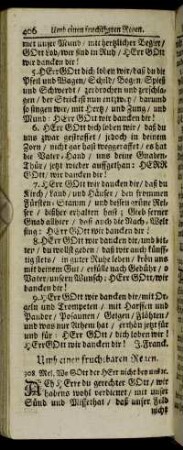 406 Umb einen fruchtbaren Reuen.
met unser Mund / mit hertzlicher Begier /
GOtt Lob / wir sind in Ruh / HErr GOtt
wir dancken dir!
5. HErr GOtt dich loben wir / daß du die
Pfeil und Wagen / Schild / Bogen / Spieß
und Schwerdt / zerbrochen und zerschla-
gen / der Strick ist nun entzwey / darumb
so singen wir / mit Hertz / und Zung / und
Mund: HErr GOtt wir dancken dir!
6. HErr GOtt dich loben wir / daß du
uns zwar gestraffet / jedoch in deinem
Zorn / nicht gar hast weggeraffet / es hat
die Vater-Hand / uns deine Gnaden-
Thür / jetzt wieder auffgethan: HERR
GOtt / wir dancken dir!
7. HErr GOtt wir dancken dir / daß du
Kirch / Land / und Häuser / den frommen
Fürsten-Stamm / und dessen grüne Rei-
ser / bißher erhalten hast: Gieb ferner
Gnad allhier / daß auch die Nach-Welt
sing: HErr GOtt wir dancken dir!
8. HErr GOtt wir dancken dir / und bit-
ten / du wollst geben / daß wir auch künff-
tig stets / in guter Ruhe leben / krön uns
mit deinem Gut / erfülle nach Gebühr / o
Vater / unsern Wunsch: HErr GOtt / wir
dancken dir!
9. HErr GOtt wir dancken dir / mit Or-
geln und Trompeten / mit Harffen und
Pandor / Posaunen / Geigen / Flöhten /
und was nur Athem hat / erthön jetzt für
und für: HErr GOtt / dich loben wir!
HErr GOtt wir dancken dir! J. Franck.
Umb einen fruchtbaren Reuen.
308. Mel. Wo GOtt der HErr nicht bey uns ec.
ACh HErr du gerechter GOtt / wir
habens wohl verdienet / mit unser
Sünd und Missethat / daß unser Feld
nicht